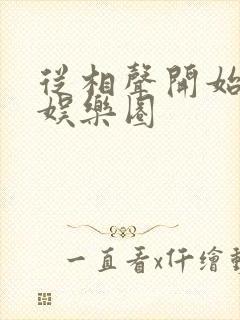 從相聲開始
娛樂圈
一直看x仟繪動